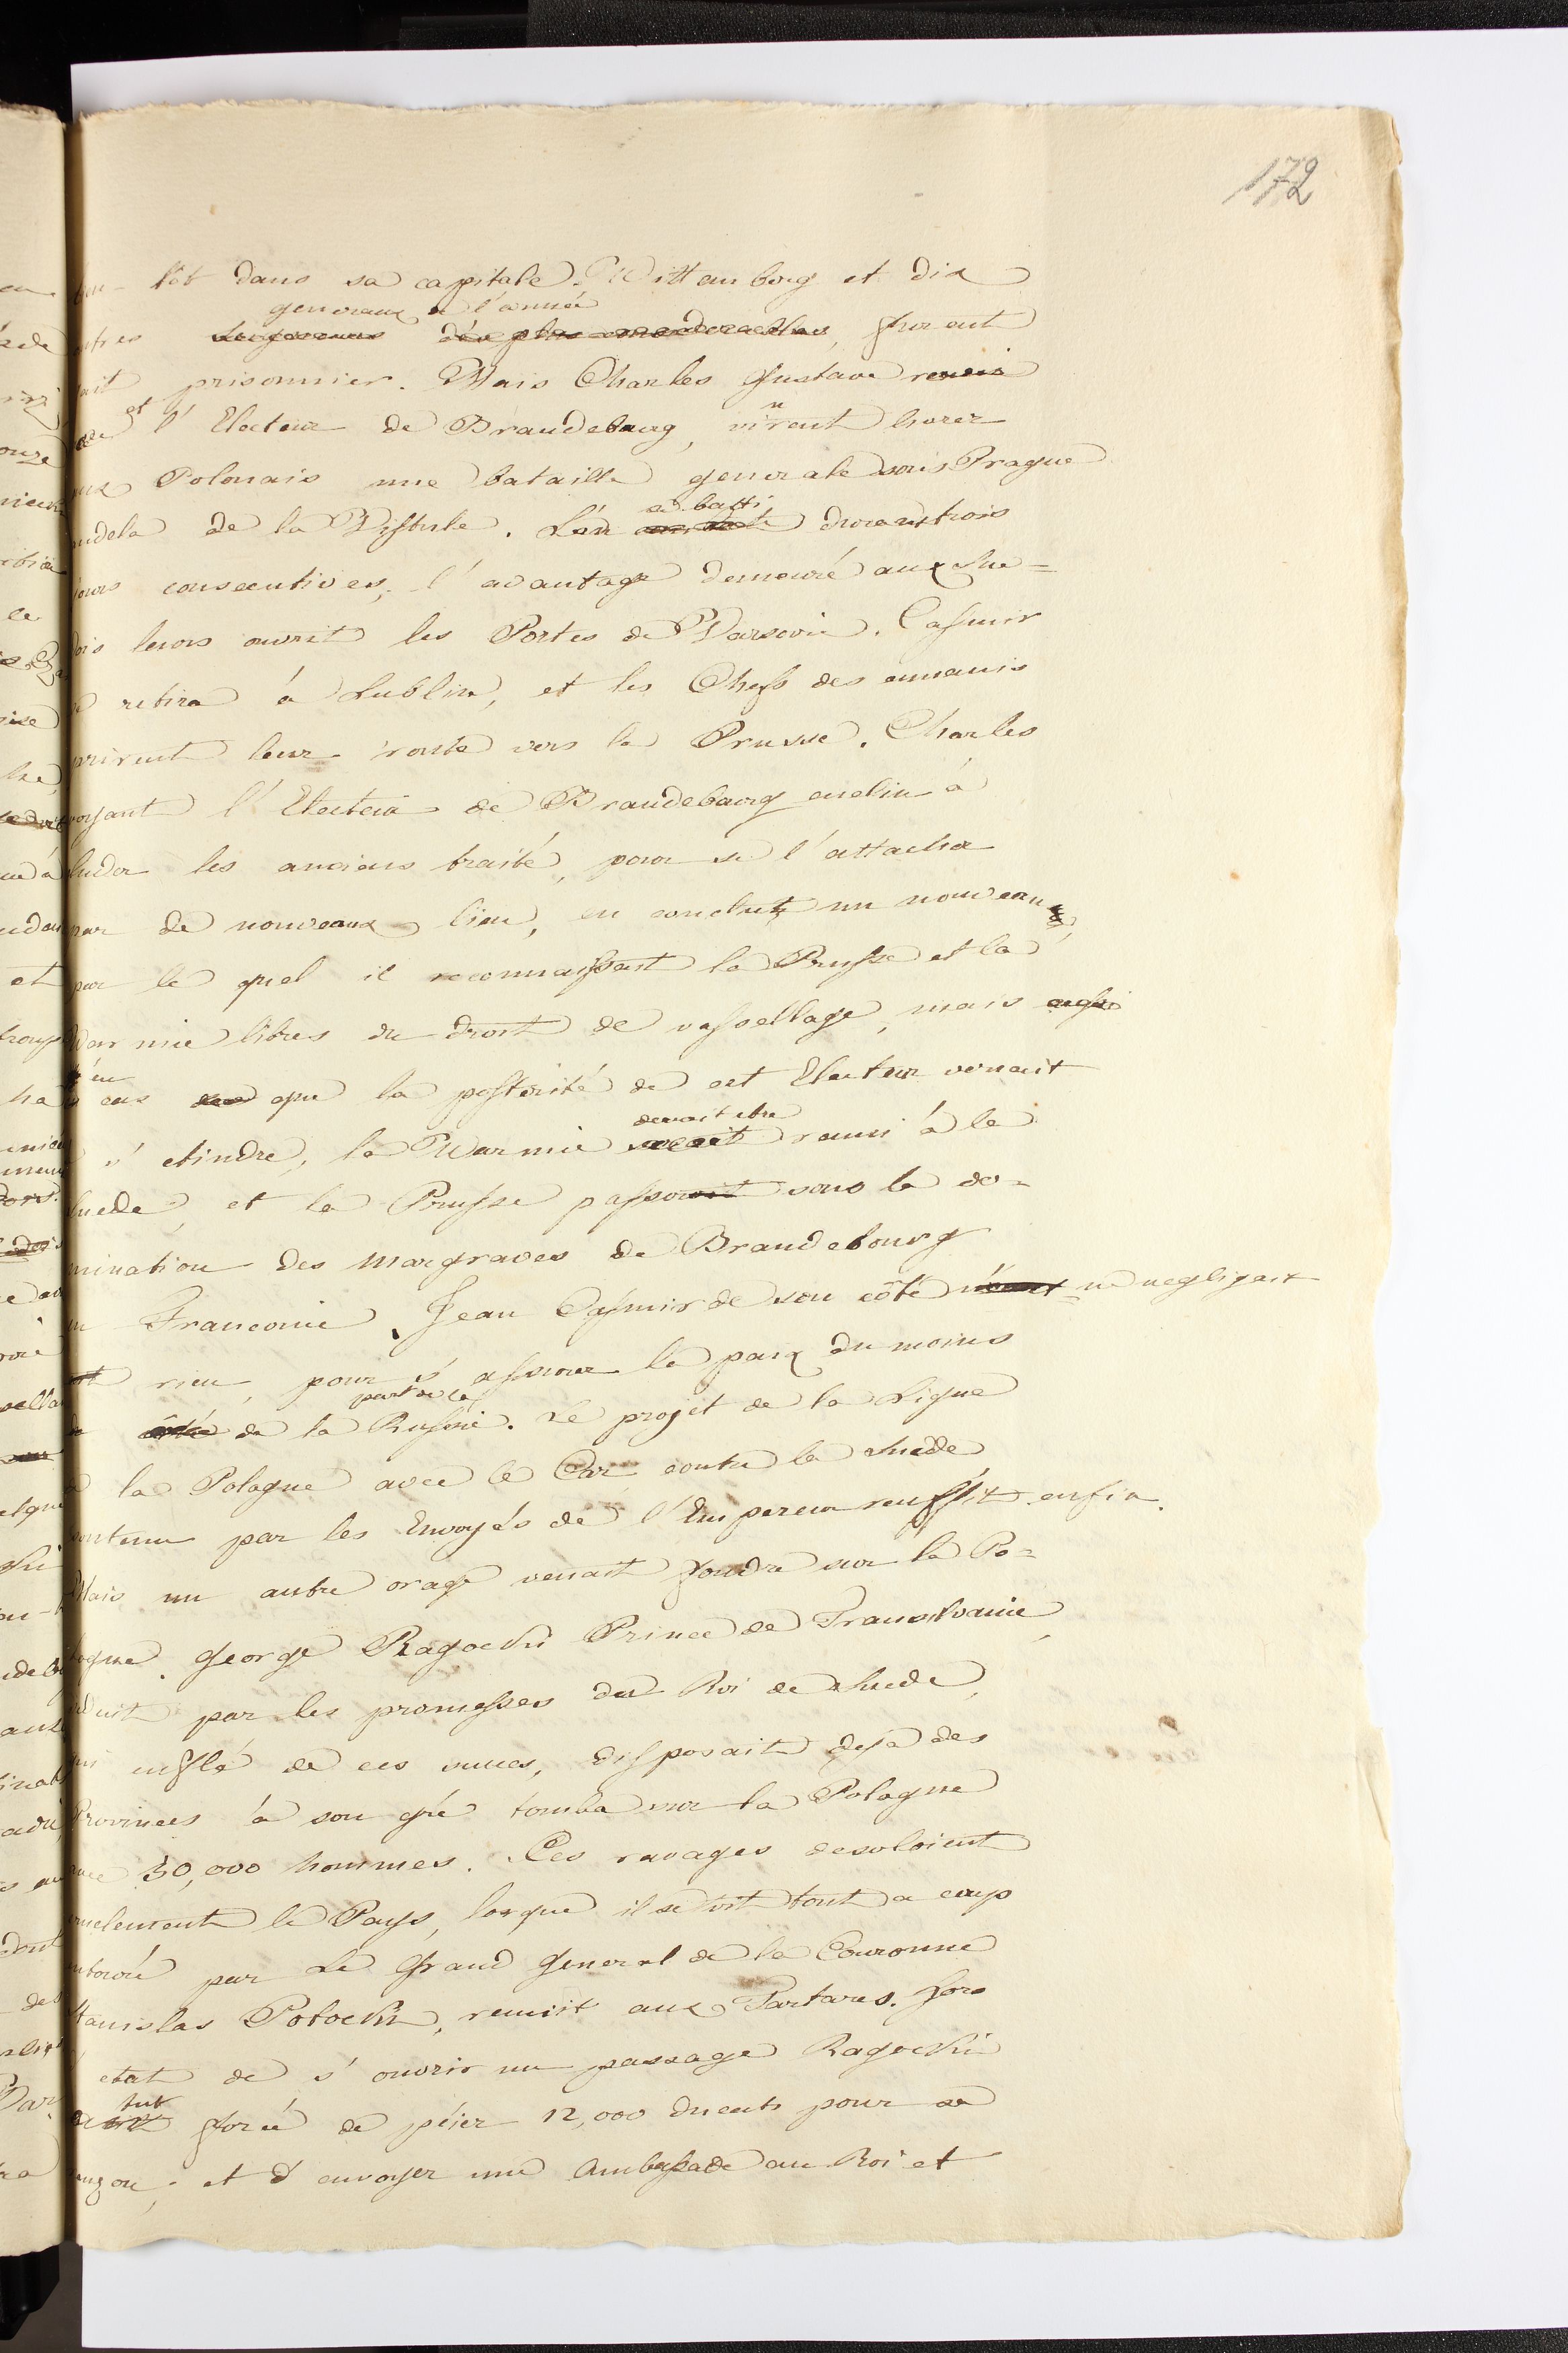 172
tôt dans sa capitale. Wittenberg et dix
generaux à l'année
furent
prisonnier. Mais Charles Gustave
et l'Electeur de Brandeburg, vinrent livrer
Polonais une bataille generale sous Prague
audela de la Vistule. L'on
durant trois
jours consecutives, l'avantage demeuré aux Sue=
dois leurs ouvrit les Portes de Varsovie. Casimir
se retira à Lublin, et les Chefs des ennemis
prirent leur route vers la Prusse. Charles
voyant l'Electeur de Brandebourg enclin à
eluder les anciens traité, pour se l'attacher
par de nouveaux lien, en conclut un nouveau,
par le quel il reconnaissant la Prusse et la
Warmie libres du droit de vassellage, mais
en cas que la postérité de cet Electeur venait
devait etre
s'etindre, la Warmie reuni à la
Suede, et la Prusse passo sous la do=
mination des margraves de Brandebourg
en Franconie. Jean Casimir de son côté ne negligait
rien, pour s'assurer la paix du moins
part de la
de la Russie. Le projet de la Ligue
de la Pologne avec le Czar contre la Suède,
soutenu par les Envoyés de l'Empereur reussit enfin.
Mais un autre orage venait fondre sur la Po=
logne. George Ragocki Prince de Transilvanie,
seduit par les promesses du Roi de Suede,
qui enflé de ces succes, disposait deja des
Provinces à son gré tomba sur la Pologne
avec 30,000 hommes. Ces ravages desoloient
cruelement le Pays, lorque il se vit tout a coup
entouré par Le Grand General de la Couronne
Stanislas Potocki, reuniit aux Tartares. hors
etat de s'ouvrir un passage Ragocki
fut
forcé de péier 12,000 ducats pour sa
rançon; et d'envoyer une Ambassade au Roi et